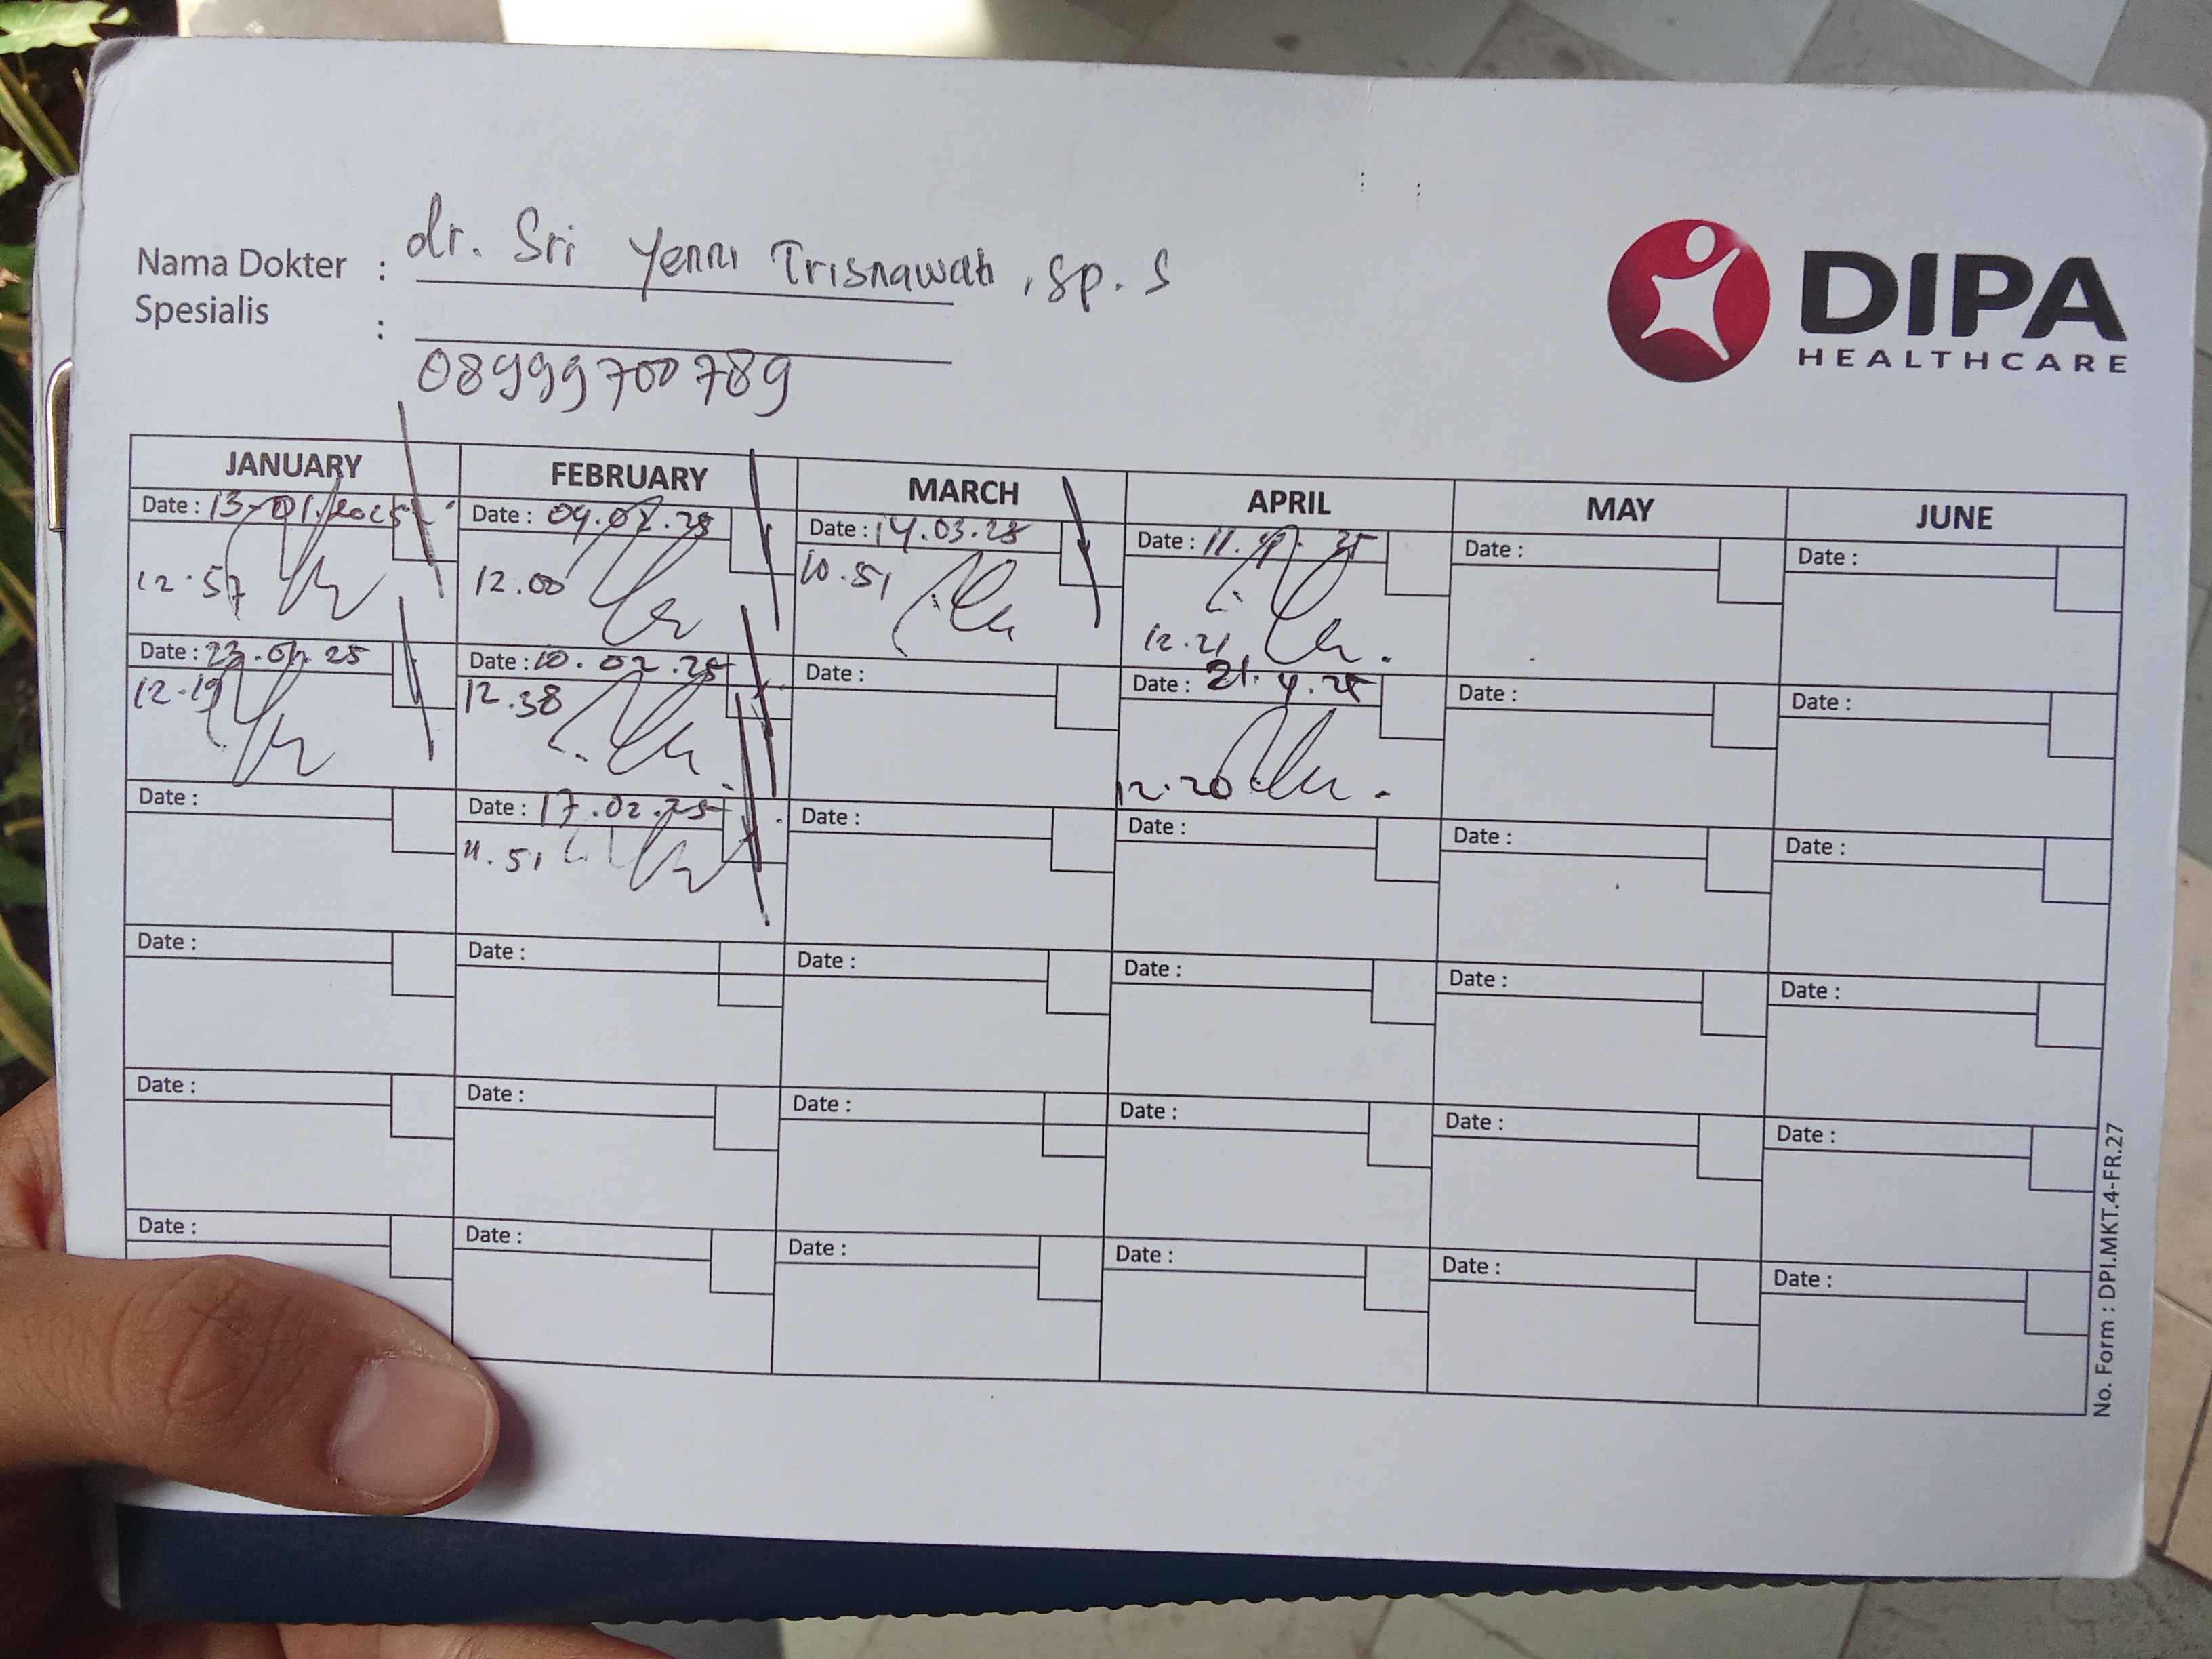 Nama Dokter : dr. Sri Yenni Trisnawati, Sp. S
Spesialis :
08999700789
DIPA
HEALTHCARE
JANUARY FEBRUARY MARCH APRIL MAY JUNE
Date : 13-01.2025 Date : 04.02.25 Date : 14.03.25 Date : 11. 25 Date : Date :
12.57 12.00 10.51 12.21
Date : 23.01.25 Date : 10.02.25 Date : Date : 21.4.25 Date : Date :
12.19 12.38 12.20
Date : Date : 17.02.25 Date : Date : Date : Date :
11.51
Date : Date : Date : Date : Date : Date :
Date : Date : Date : Date : Date : Date :
Date : Date : Date : Date : Date : Date :
No. Form : DPI.MKT.4-FR.27